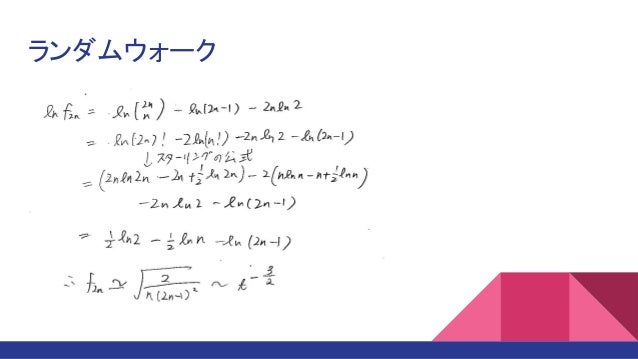 ランダムウォーク
ln f₂ₙ = ln (2n n) - ln(2n-1) - 2n ln 2
= ln(2n)! - 2ln(n!) - 2n ln 2 - ln(2n-1)
↓スターリングの公式
= (2n ln 2n - 2n + 1/2 ln 2n) - 2(n ln n - n + 1/2 ln n)
- 2n ln 2 - ln(2n-1)
= 1/2 ln 2 - 1/2 ln n - ln(2n-1)
∴ f₂ₙ ≃ √(2/(n(2n-1)²)) ~ t^(-3/2)